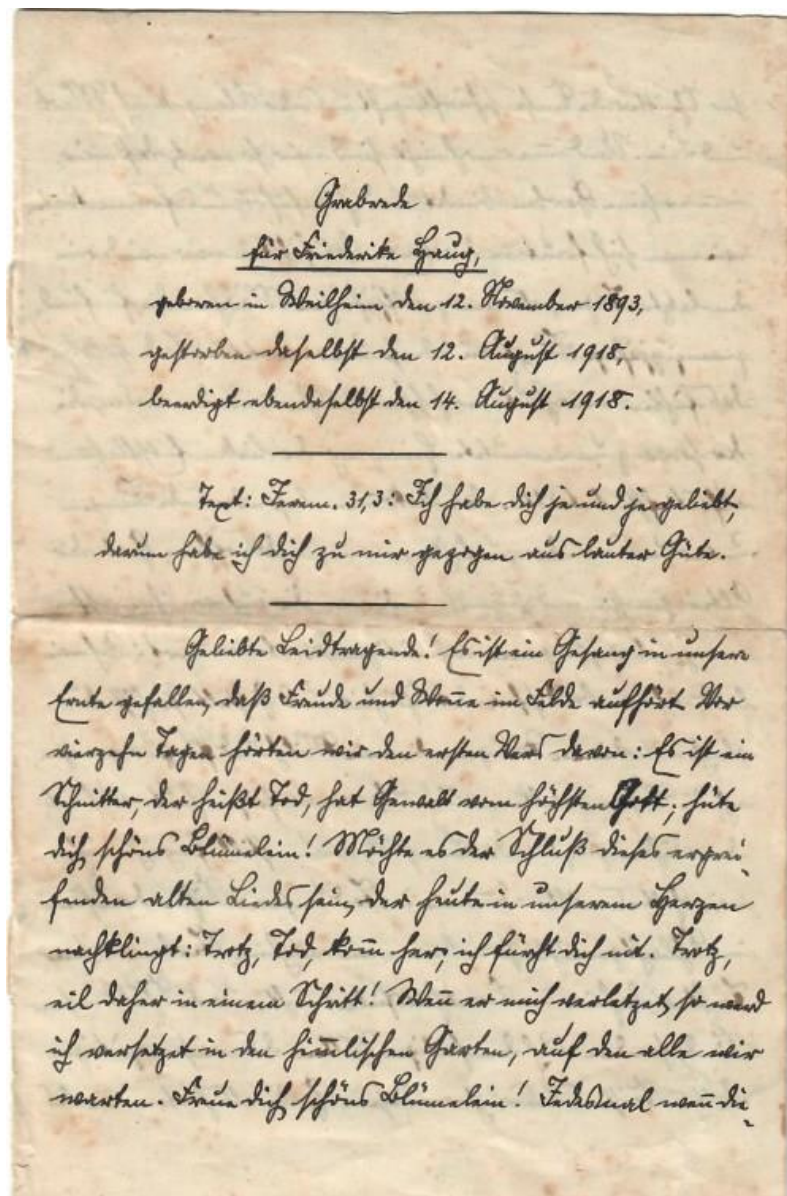 Grabrede
für Friederike Haug,
geboren in Weilheim den 12. November 1893,
gestorben daselbst den 12. August 1918,
beerdigt ebendaselbst den 14. August 1918.
Text: Jerem. 31,3: Ich habe dich je und je geliebt,
darum habe ich dich zu mir gezogen aus lauter Güte.
Geliebte Leidtragende! Es ist ein Gesang in unsere
Ernte gefallen, daß Freude und Woñe im Felde aufhört. Vor
vierzehn Tagen hörten wir den ersten Vers davon: Es ist ein
Schnitter, der heißt Tod, hat Gewalt vom höchsten Gott; hüte
dich, schöns Blümelein! Möchte es der Schluß dieses ergrei-
fenden alten Liedes sein, der heute in unserem Herzen
nachklingt: Trotz, Tod, kom̃ her, ich fürcht dich nit. Trotz,
eil daher in einem Schritt! Weñ er mich verletzet, so werd
ich versetzet in den him̃lischen Garten, auf den alle wir
warten. Freue dich, schöns Blümelein! Jedesmal weñ die-